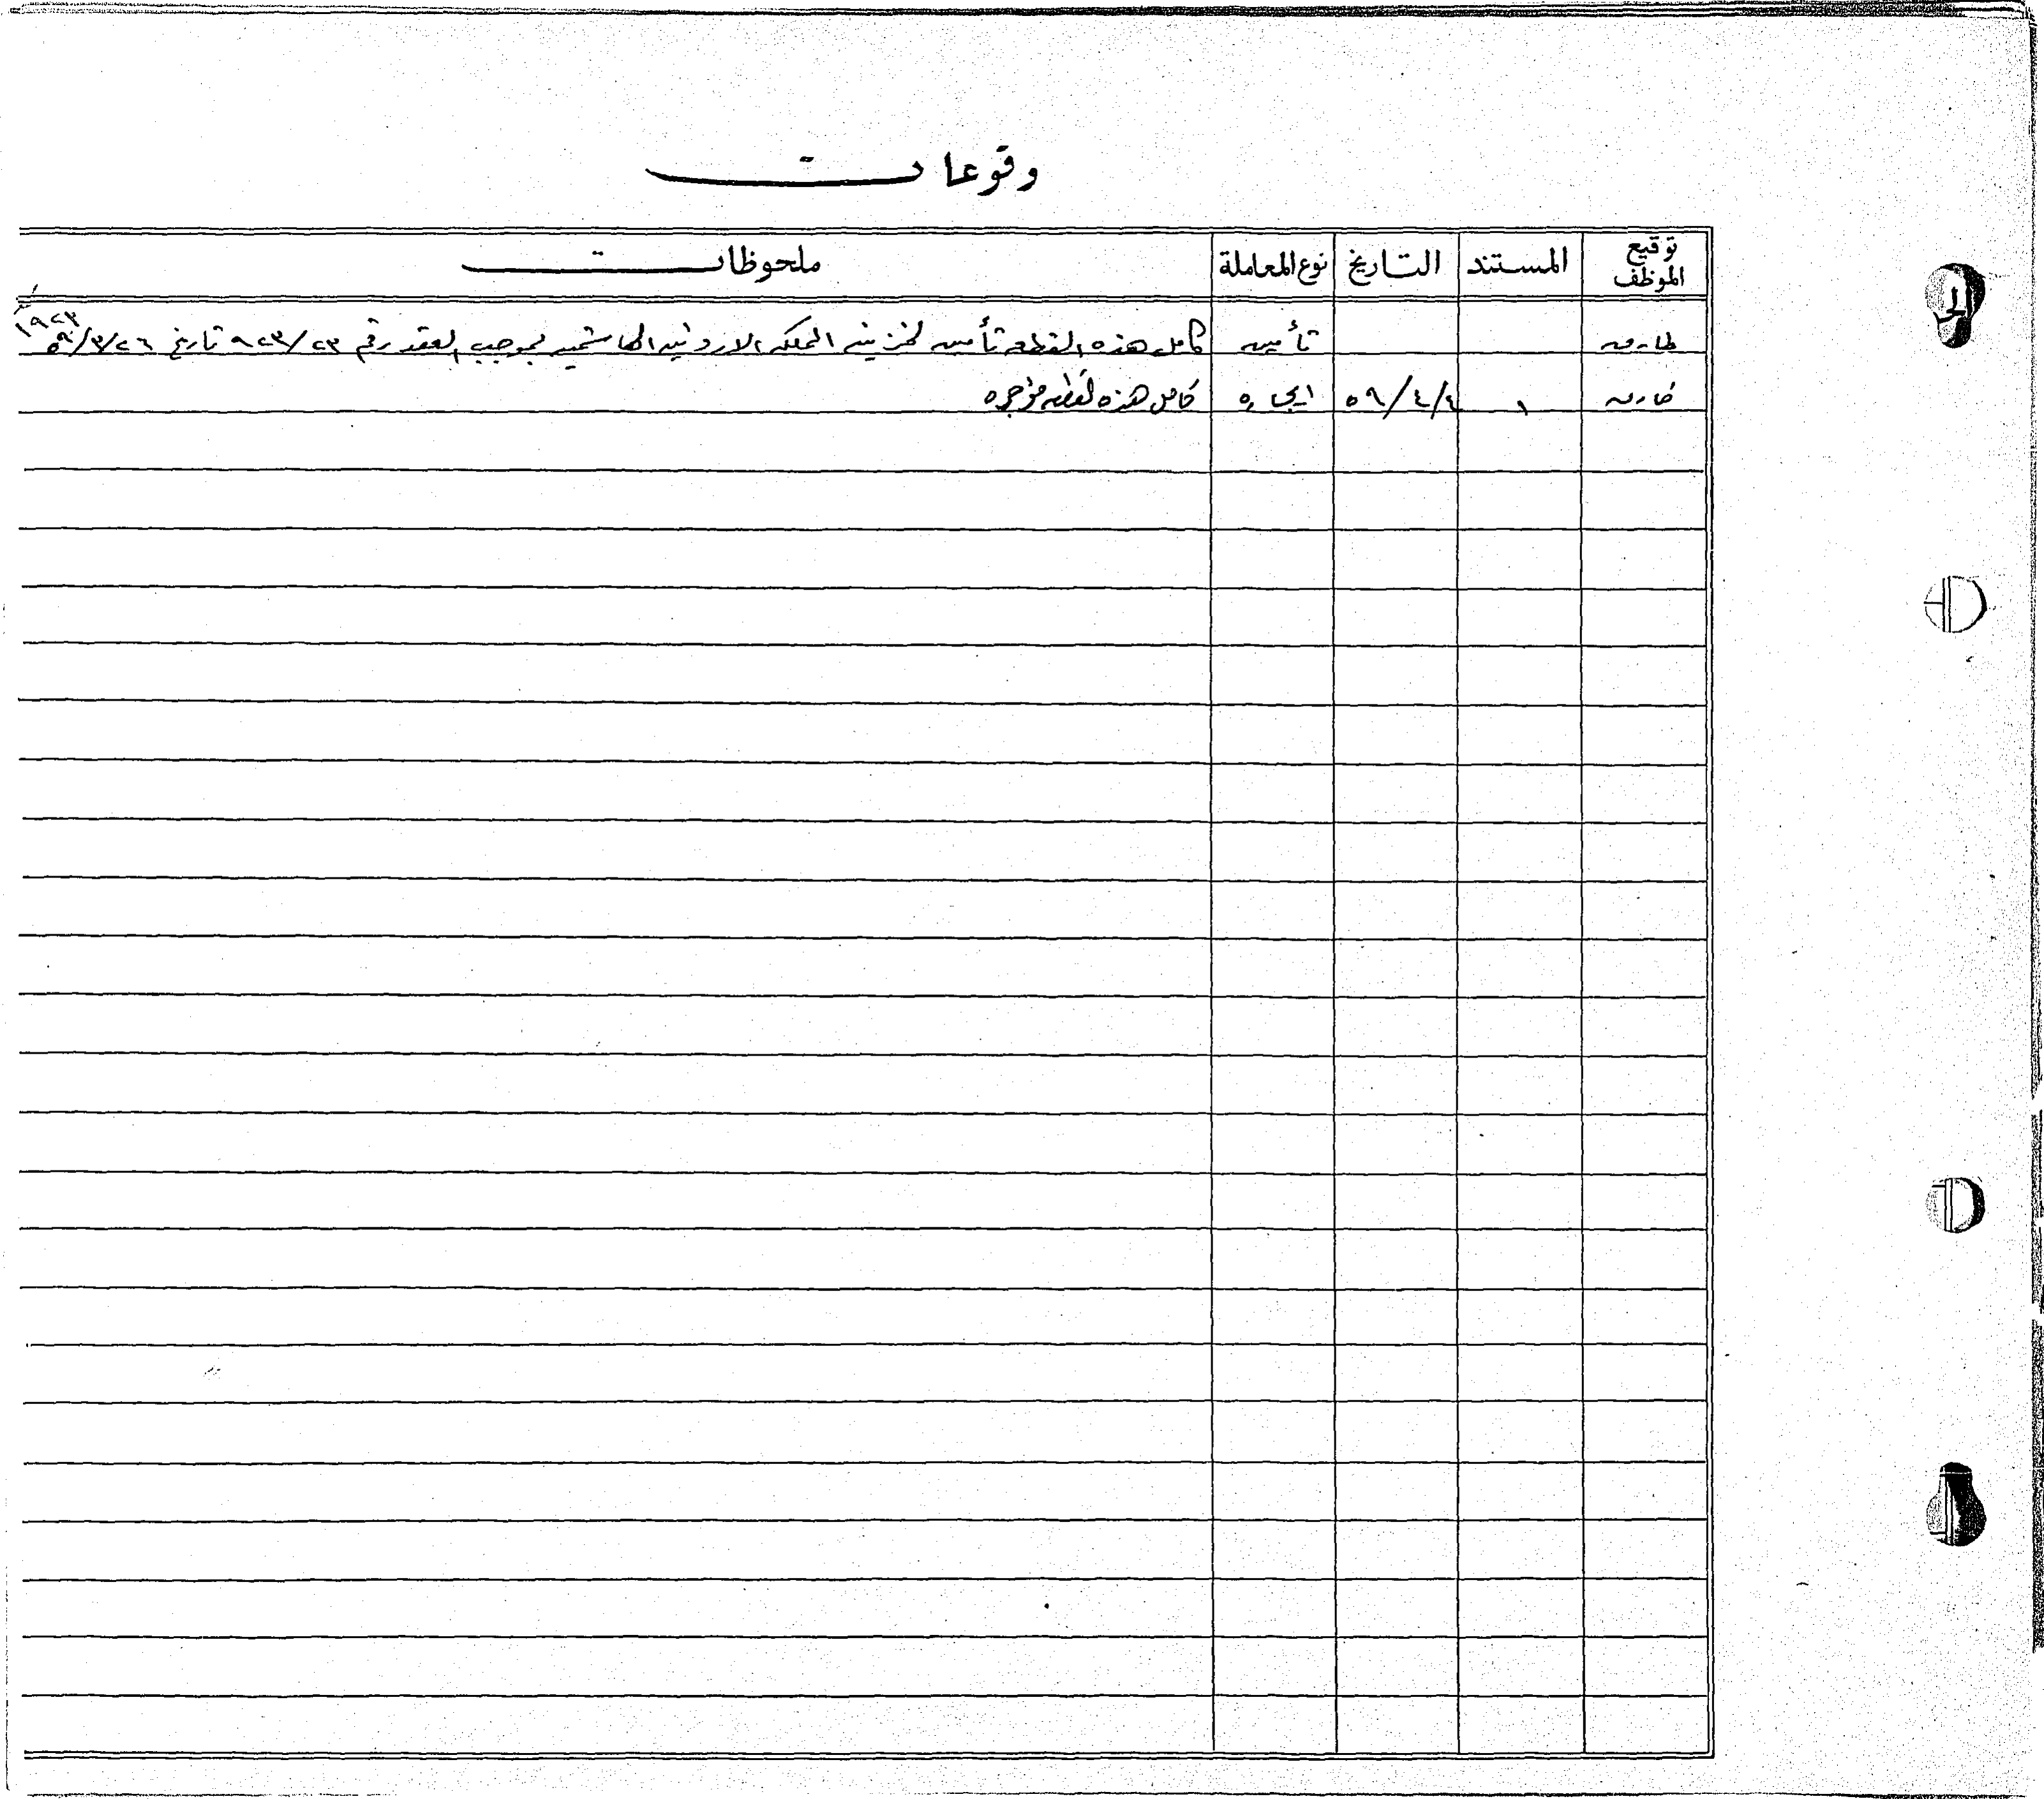 وقوعات
توقيع الموظف المستند التاريخ نوع المعاملة ملحوظات
طارق تأمين كامل هذه القطعه تأمين لخزينة المملكه الاردنيه الهاشميه بموجب العقد رقم ٩٢٣/٢٣ تاريخ ٥٩/٣/٢٦
١ ٥٩/٤/٤ ايجاره كامل هذه القطعه مؤجره